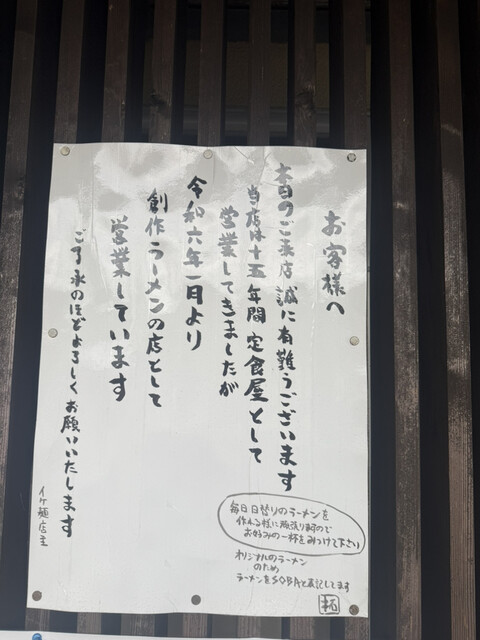 お客様へ
本日のご来店誠に有難うございます
当店は十五年間定食屋として
営業してきましたが
令和六年一月より
創作ラーメンの店として
営業しています
ご了承のほどよろしくお願いいたします
イケ麺店主
毎日日替りのラーメンを
作れる様に頑張り〼ので
お好みの一杯をみつけて下さい
オリジナルのラーメン
のため
ラーメンをSOBAと表記してます